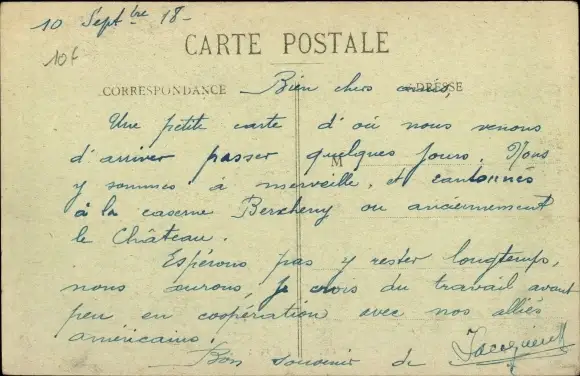 10 Septbre 18-
10f
CARTE POSTALE
CORRESPONDANCE
ADRESSE
Bien chers amis,
Une petite carte d'où nous venons
d'arriver passer quelques jours. Nous
M
y sommes à merveille, et cantonnés
à la caserne Bercheny ou anciennement
le Château.
Espérons pas y rester longtemps,
nous aurons, je crois du travail avant
peu en coopération avec nos alliés
américains.
Bon souvenir de